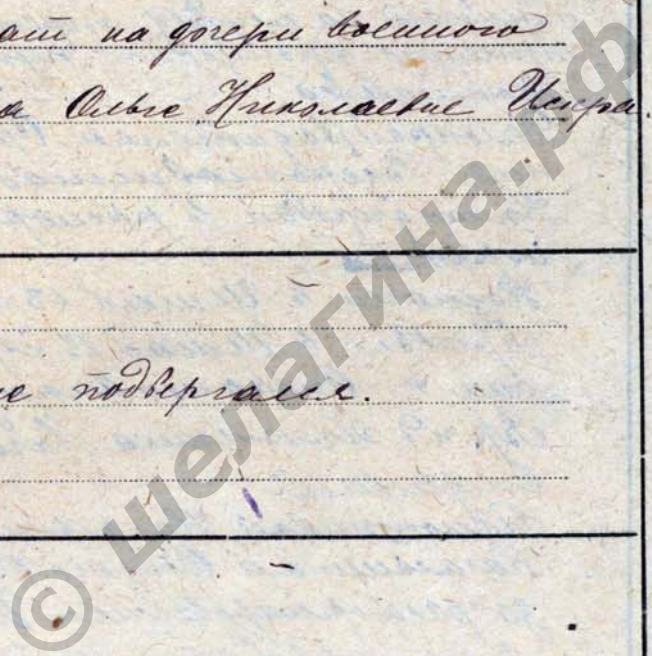 ат на дочери военного
а Ольге Николаевне Искра.
не подвергался.
© шелагина.рф